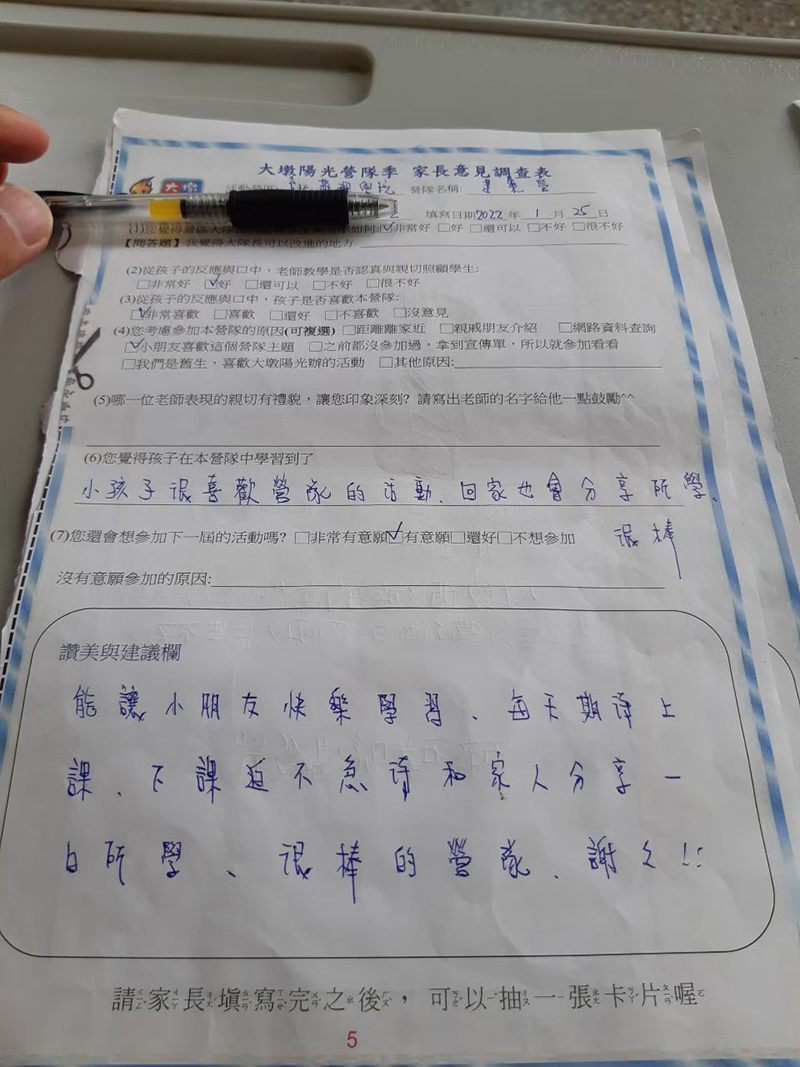 大墩陽光營隊季 家長意見調查表
大墩
營隊名稱:
填寫日期2022年1月25日
(1)您覺得營區大隊長 如何 ☑非常好 □好 □還可以 □不好 □很不好
【問答題】我覺得大隊長可以改進的地方
(2)從孩子的反應與口中，老師教學是否認真與親切照顧學生:
□非常好 ☑好 □還可以 □不好 □很不好
(3)從孩子的反應與口中、孩子是否喜歡本營隊:
☑非常喜歡 □喜歡 □還好 □不喜歡 □沒意見
(4)您考慮參加本營隊的原因(可複選) □距離離家近 □親戚朋友介紹 □網路資料查詢
☑小朋友喜歡這個營隊主題 □之前都沒參加過，拿到宣傳單，所以就參加看看
□我們是舊生，喜歡大墩陽光辦的活動 □其他原因:
(5)哪一位老師表現的親切有禮貌，讓您印象深刻? 請寫出老師的名字給他一點鼓勵^^
(6)您覺得孩子在本營隊中學習到了
小孩子很喜歡營隊的活動、回家也會分享所學、
很棒
(7)您還會想參加下一屆的活動嗎? □非常有意願☑有意願□還好□不想參加
沒有意願參加的原因:
讚美與建議欄
能讓小朋友快樂學習、每天期待上
課、下課迫不急待和家人分享一
日所學、很棒的營隊、謝々!!
請家長填寫完之後，可以抽一張卡片喔
5